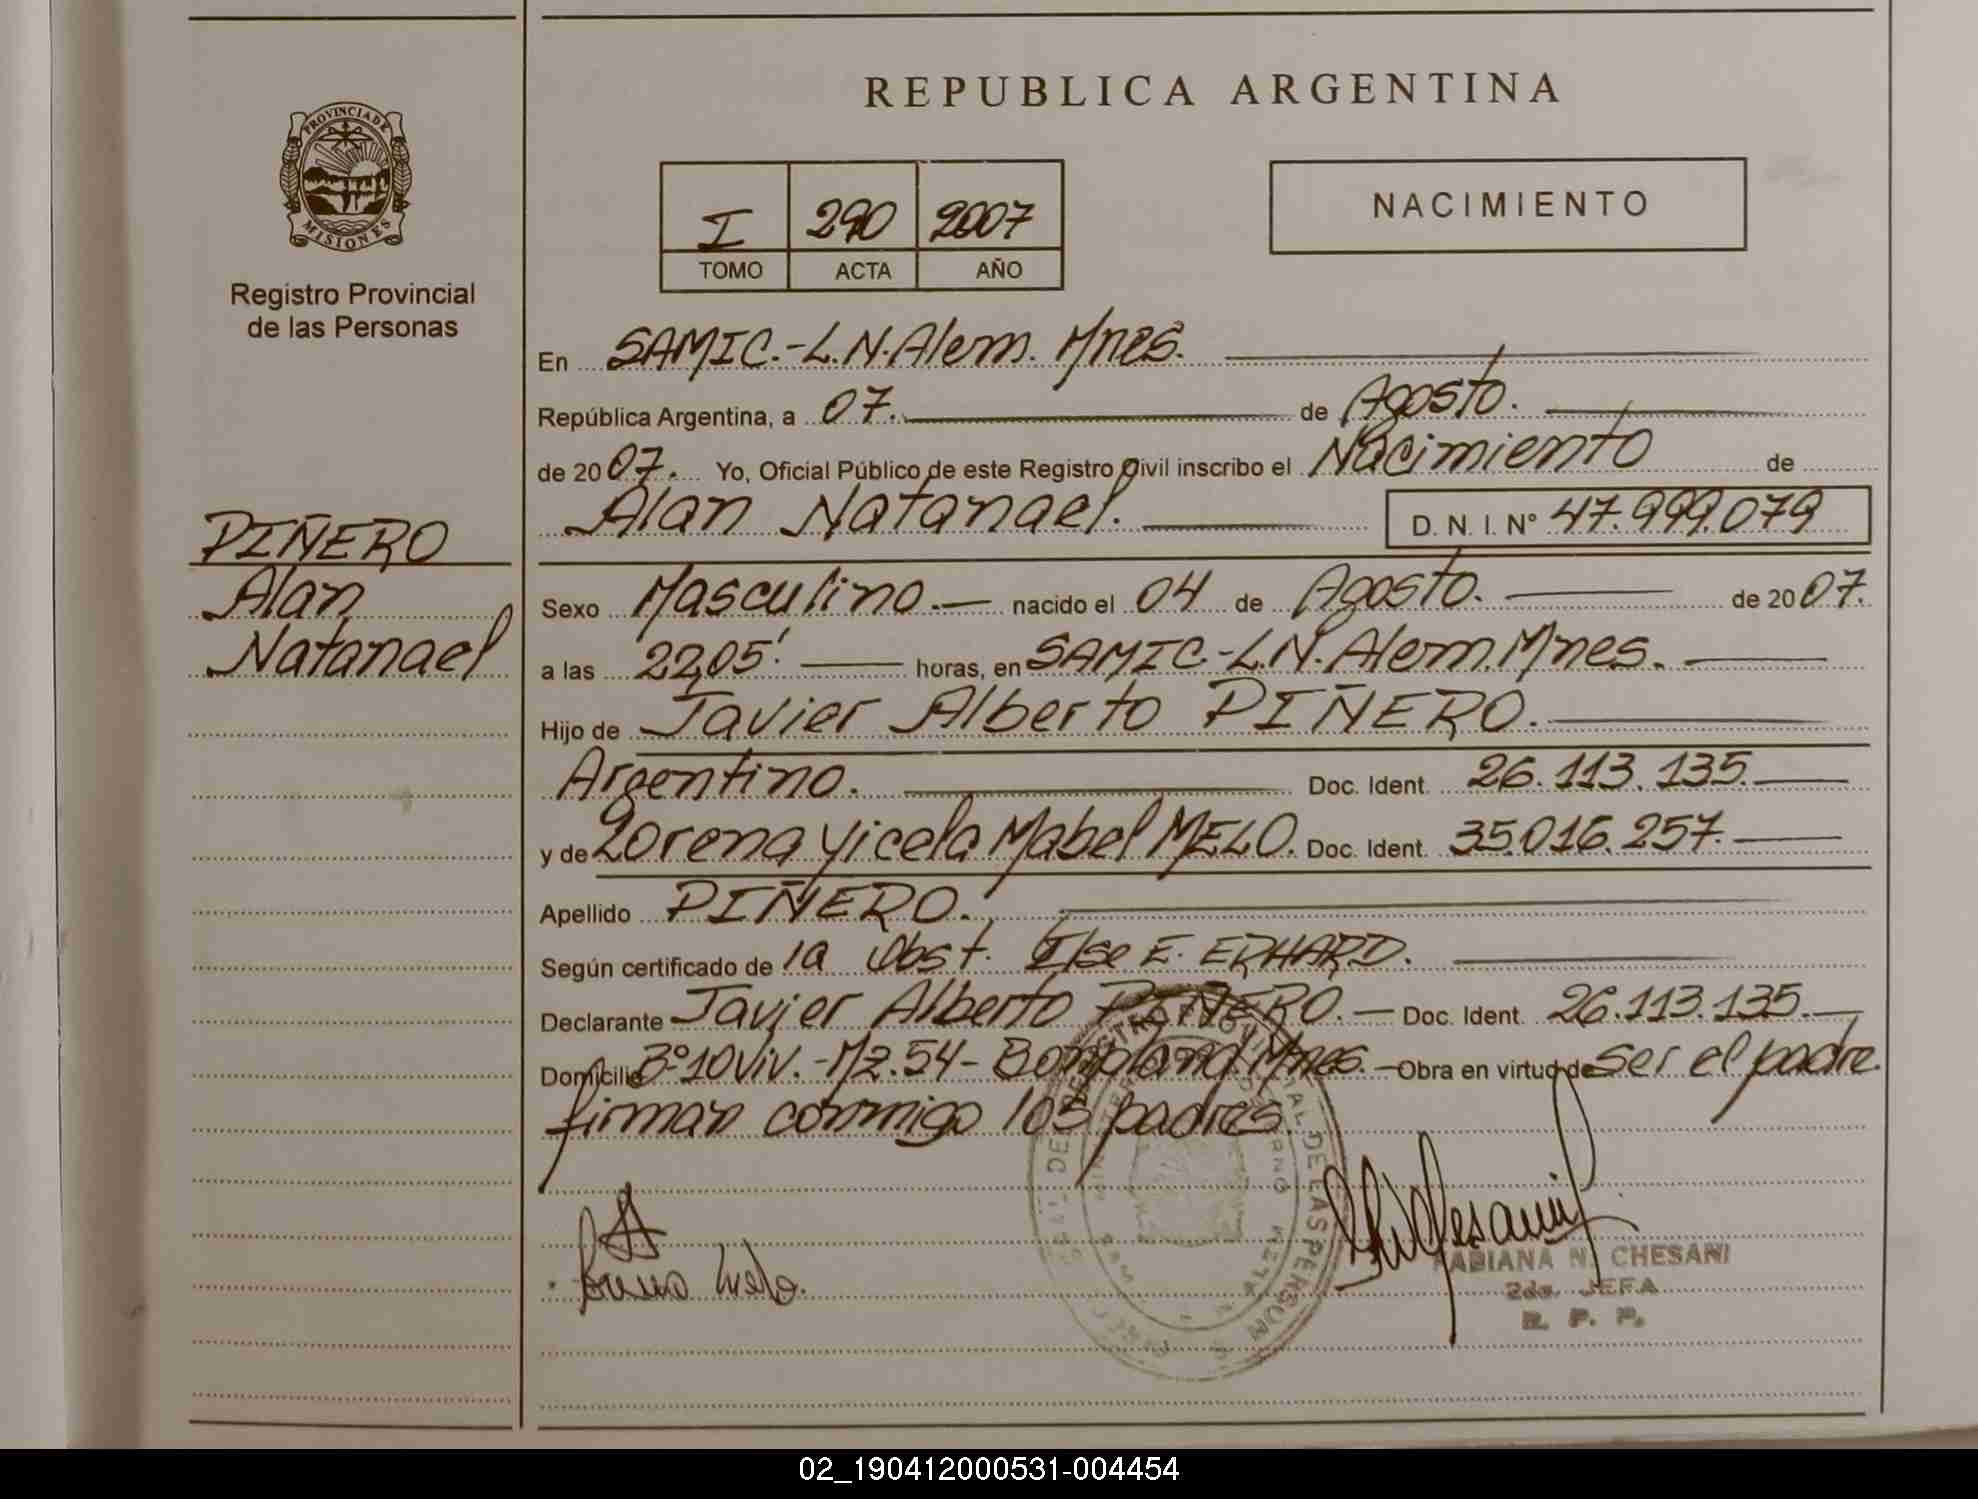 PROVINCIA DE
MISIONES
Registro Provincial
de las Personas
PIÑERO
Alan
Natanael
REPUBLICA ARGENTINA
I 290 2007
TOMO ACTA AÑO
NACIMIENTO
En SAMIC.-L.N.Alem. Mnes.
República Argentina, a 07. de Agosto.
de 2007. Yo, Oficial Público de este Registro Civil inscribo el Nacimiento de
Alan Natanael. D. N. I. N° 47.999.079
Sexo Masculino. nacido el 04 de Agosto. de 2007.
a las 22,05' horas, en SAMIC.-L.N.Alem.Mnes.
Hijo de Javier Alberto PIÑERO.
Argentino. Doc. Ident. 26.113.135.
y de Lorena Yicela Mabel MELO. Doc. Ident. 35.016.257.
Apellido PIÑERO.
Según certificado de la Obst. Ilse E. ERHARD.
Declarante Javier Alberto PIÑERO. Doc. Ident. 26.113.135.
Domicilio B°10Viv.-Mz.54-Bompland.Mnes. Obra en virtud de ser el padre.
firman conmigo los padres.
FABIANA N. CHESANI
2da. JEFA
R. P. P.
02_190412000531-004454